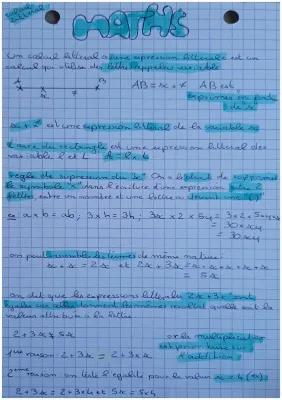 calcul littéral
MATHS
Un calcul littéral ou une expression littérale est un
calcul qui utilise des lettres appelées variable
A B
x 7
AB = x + 7 AB est
exprimée en fonction
de x
x + 7 est une expression littéral de la variable x
L'aire du rectangle est une expression littéral des
variable l et L A = L × l
règle de supression du "×" On a le droit de supprimer
le symbole "×" dans l'écriture d'une expression entre 2
lettres, entre un nombre et une lettre ou devant une "("
ex a × b = ab ; 3 × h = 3h ; 3x × 2 × 5y = 3 × 2 × 5 × x × y
= 30 × xy
= 30xy
on peut rassembler les termes de même nature :
x + x = 2x et 2x + 3x = x + x + x + x + x
= 5x
on dit que les expressions littérales 2x + 3x sont
égales
valeurs attribuée à la lettre
2 + 3x ≠ 5x
or la multiplication
est prioritaire sur
l'addition
1ère raison : 2 + 3x = 2 + 3 × x
2ème raison on teste l'égalité pour la valeur x = 4 (ex)
2 + 3x = 2 + 3 × 4 et 5x = 5 × 4